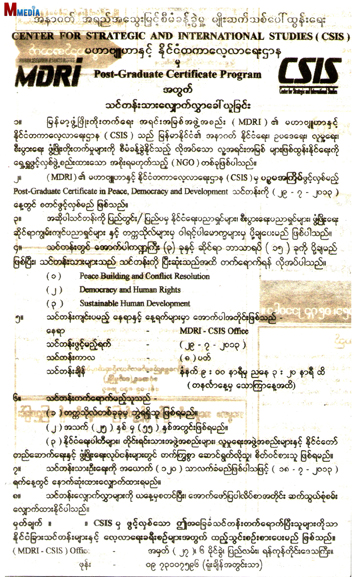 MMEDIA
အနာဂတ် အရည်အသွေးမြင့်စီမံခန့်ခွဲမှု မျိုးဆက်သစ်ပေါ်ထွန်းရေး
CENTER FOR STRATEGIC AND INTERNATIONAL STUDIES ( CSIS )
မဟာဗျူဟာနှင့် နိုင်ငံတကာလေ့လာရေးဌာန
MDRI
မှ
CSIS
Post-Graduate Certificate Program
Center for Strategic and International Studies
အတွက်
သင်တန်းသားလျှောက်လွှာခေါ်ယူခြင်း
၁။ မြန်မာ့ဖွံ့ဖြိုးတိုးတက်ရေး အရင်းအမြစ်အဖွဲ့အစည်း ( MDRI ) ၏ မဟာဗျူဟာနှင့်
နိုင်ငံတကာလေ့လာရေးဌာန ( CSIS ) သည် မြန်မာနိုင်ငံ၏ အနာဂတ် နိုင်ငံရေး၊ ဥပဒေရေး၊ လူမှုရေး၊
စီးပွားရေး ဖွံ့ဖြိုးတိုးတက်မှုများကို စီမံခန့်ခွဲနိုင်သည့် လိုအပ်သော လူ့အရင်းအမြစ် များဖြစ်ထွန်းနိုင်ရေးကို
ရှေးရှု၍ဖွဲ့စည်းထားသော အစိုးရမဟုတ်သည့် ( NGO ) တစ်ခုဖြစ်ပါသည်။
၂။ (MDRI) ၏ မဟာဗျူဟာနှင့် နိုင်ငံတကာလေ့လာရေးဌာန ( CSIS ) မှ ပဉ္စမအကြိမ်ဖွင့်လှစ်မည့်
Post-Graduate Certificate in Peace, Democracy and Development သင်တန်းကို ( ၂၉ - ၇ - ၂၀၁၃ )
နေ့တွင် စတင်ဖွင့်လှစ်မည် ဖြစ်သည်။
၃။ အဆိုပါသင်တန်းကို ပြည်တွင်း/ ပြည်ပမှ နိုင်ငံရေးပညာရှင်များ၊ စီးပွားရေးပညာရှင်များ၊ ဖွံ့ဖြိုးရေး
ဆိုင်ရာကျွမ်းကျင်ပညာရှင်များ နှင့် တက္ကသိုလ်များမှ ပါရဂူပါမောက္ခများမှ ပို့ချပေးမည် ဖြစ်ပါသည်။
၄။ သင်တန်းတွင် အောက်ပါကဏ္ဍကြီး (၃) ခုနှင့် ဆိုင်ရာ ဘာသာရပ် ( ၁၅ ) ခုကို ပို့ချမည်
ဖြစ်ပြီး၊ သင်တန်းသားများသည် သင်တန်းကို ပြီးဆုံးသည်အထိ တက်ရောက်ရန် လိုအပ်ပါသည်။
( ၁ ) Peace Building and Conflict Resolution
( ၂ ) Democracy and Human Rights
( ၃ ) Sustainable Human Development
၅။ သင်တန်းကျင်းပမည့် နေရာနှင့် နေ့ရက်များမှာ အောက်ပါအတိုင်းဖြစ်သည်
နေရာ - MDRI - CSIS Office
သင်တန်းဖွင့်မည့်ရက် - ( ၂၉ - ၇ - ၂၀၁၃ )
သင်တန်းကာလ - ( ၈ ) ပတ်
သင်တန်းချိန် - နံနက် ၉ : ၀၀ နာရီမှ ညနေ ၃ : ၂၀ နာရီ ထိ
( တနင်္လာနေ့မှ သောကြာနေ့အထိ)
၆။ သင်တန်းတက်ရောက်မည့်သူသည် -
( ၁ ) တက္ကသိုလ်တစ်ခုခုမှ ဘွဲ့ရရှိသူ ဖြစ်ရမည်။
( ၂ ) အသက် ( ၂၅ ) နှစ် မှ ( ၅၅ ) နှစ်အတွင်းဖြစ်ရမည်။
( ၃ ) နိုင်ငံရေးပါတီများ၊ တိုင်းရင်းသားအဖွဲ့အစည်းများ၊ လူမှုရေးအဖွဲ့အစည်းများနှင့် နိုင်ငံတော်
တည်ဆောက်ရေးနှင့် ဖွံ့ဖြိုးရေးလုပ်ငန်းများတွင် တက်ကြွစွာ ဆောင်ရွက်လိုသူ၊ စိတ်ဝင်စားသူ ဖြစ်ရမည်။
၇။ သင်တန်းသားဦးရေကို အယောက် ( ၁၂၀ ) သာလက်ခံမည်ဖြစ်ပါသဖြင့် ( ၁၈ - ၇ - ၂၀၁၃ )
ရက်နေ့တွင် နောက်ဆုံးထားလျှောက်ထားရမည်။
၈။ သင်တန်းလျှောက်လွှာများကို ယနေ့မှစတင်ပြီး အောက်ဖော်ပြပါလိပ်စာအတိုင်း ဆက်သွယ်စုံစမ်း
လျှောက်ထားနိုင်ပါသည်။
မှတ်ချက် ။ ။ CSIS မှ ဖွင့်လှစ်သော ဤအခြေခံသင်တန်းတက်ရောက်ပြီးသူများကိုသာ
နိုင်ငံခြားသင်တန်းများနှင့် လေ့လာရေးခရီးစဉ်များအတွက် ထည့်သွင်းစဉ်းစားပေးမည် ဖြစ်သည်။
( MDRI - CSIS ) Office: - အမှတ် ( ၂၇ )၊ ၆ မိုင်ခွဲ၊ ပြည်လမ်း၊ ရန်ကုန်တိုင်းဒေသကြီး။
ဖုန်း - ၀၉ ၇၃၁၀၇၅၉၆ ( ရုံးချိန်အတွင်းသာ)